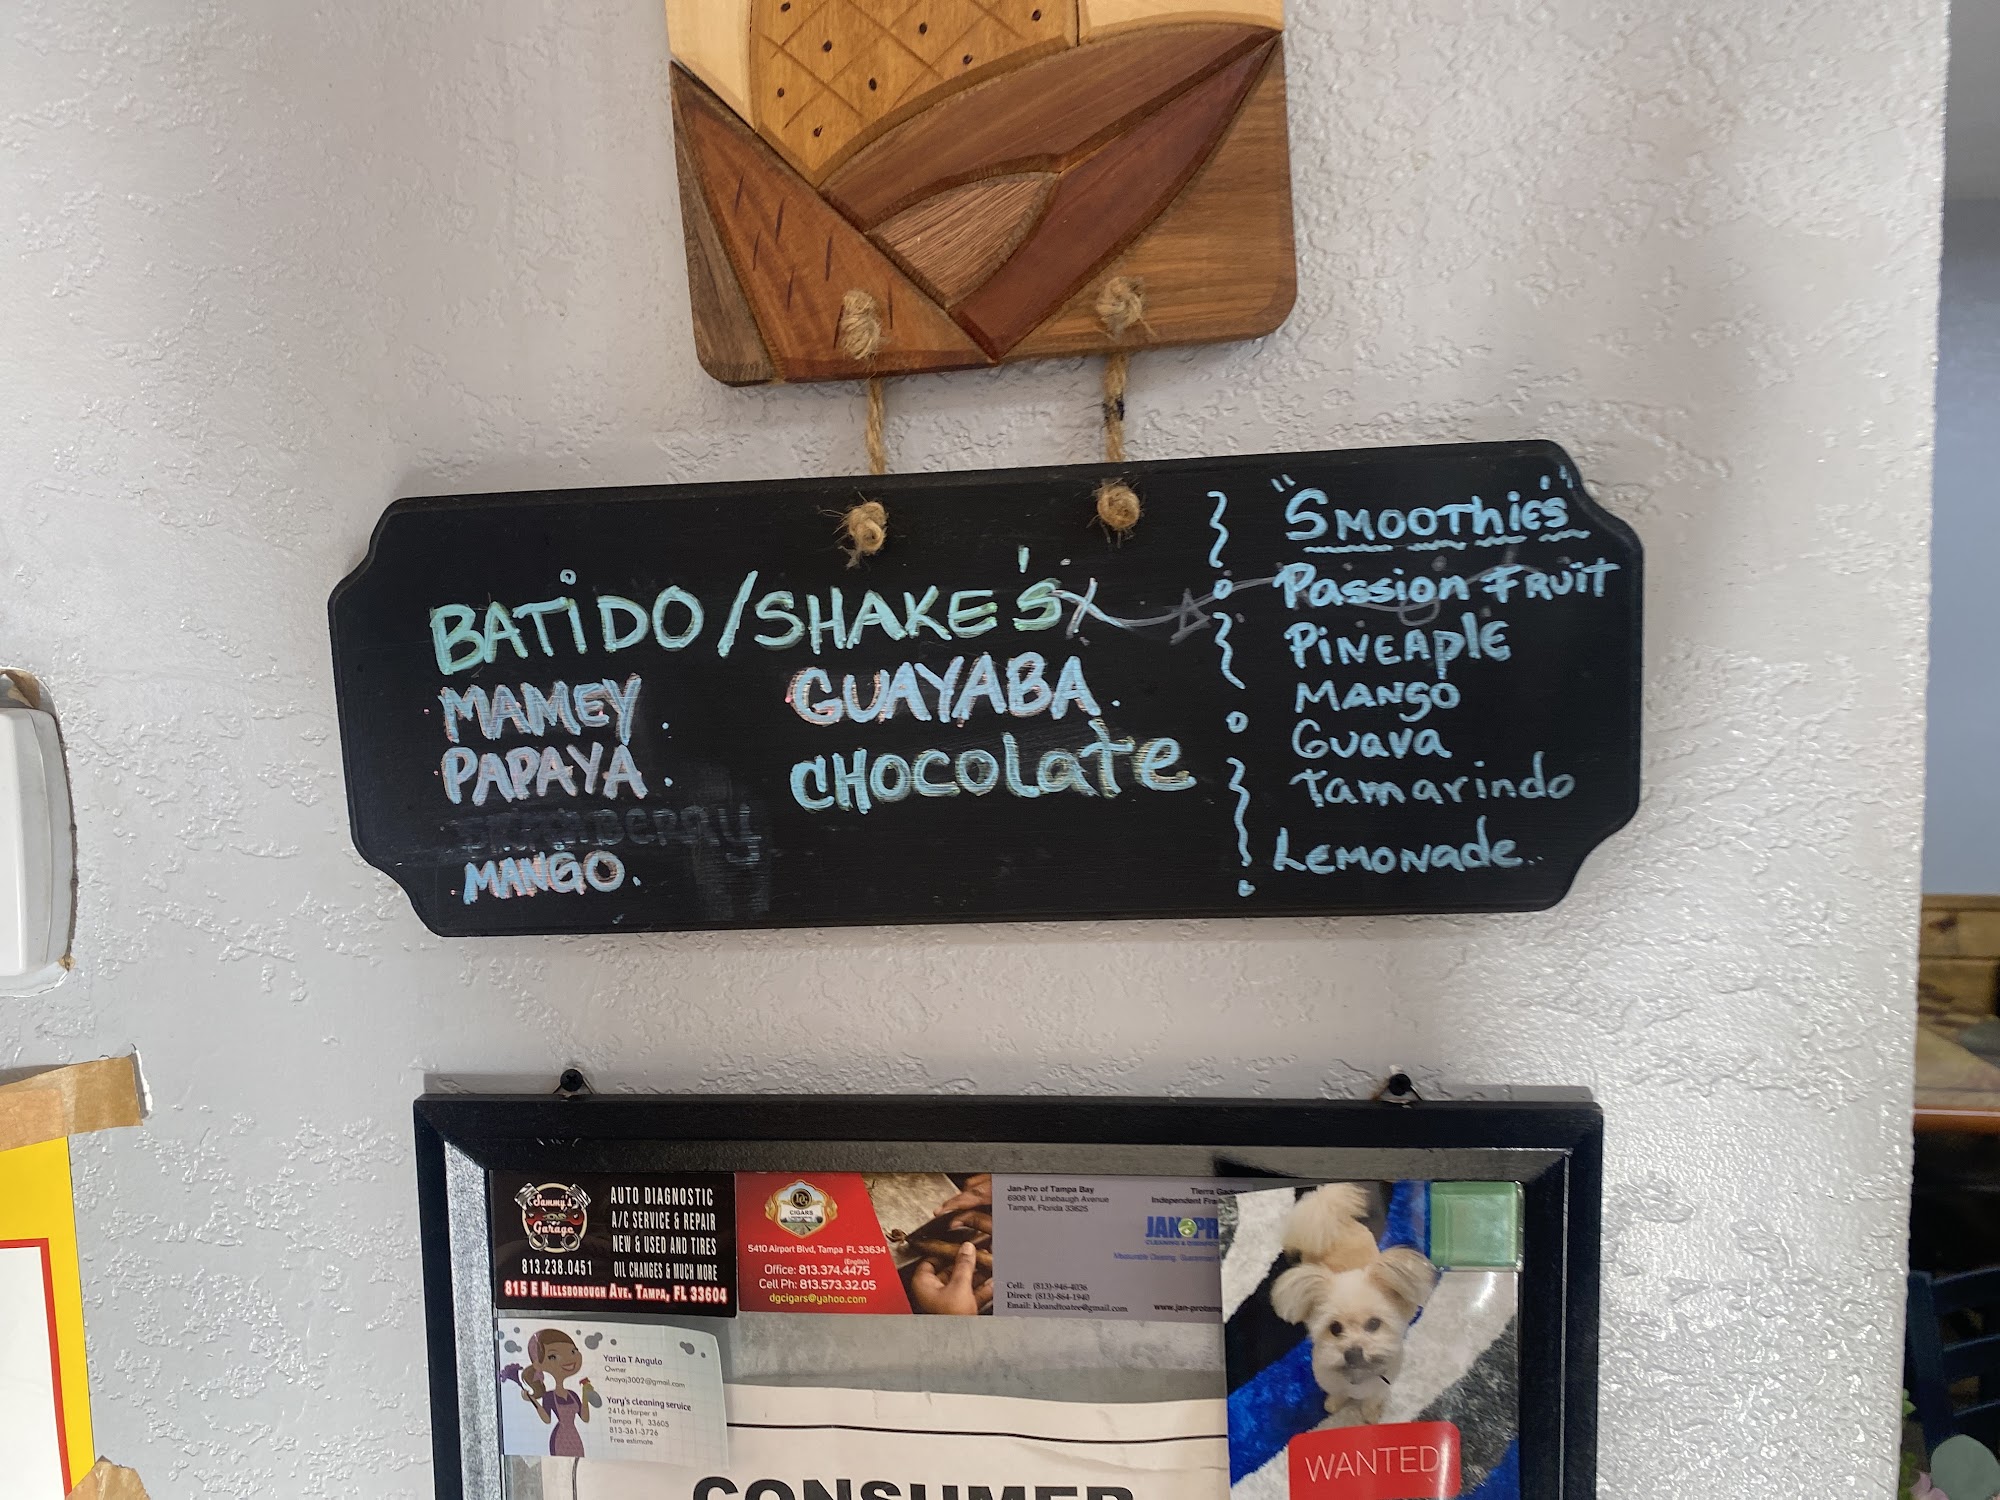 BATIDO/SHAKE'S
MAMEY.
PAPAYA.
STRAWBERRY
MANGO.
GUAYABA.
CHOCOLATE
"SMOOTHIE'S"
PASSION FRUIT
PINEAPPLE
MANGO
GUAVA
TAMARINDO
LEMONADE..
Sammy's
Garage
813.238.0451
AUTO DIAGNOSTIC
A/C SERVICE & REPAIR
NEW & USED AND TIRES
OIL CHANGES & MUCH MORE
815 E HILLSBOROUGH AVE. TAMPA, FL 33604
CIGARS
5410 Airport Blvd, Tampa FL 33634
(English)
Office: 813.374.4475
Cell Ph: 813.573.32.05
dgcigars@yahoo.com
Jan-Pro of Tampa Bay
6908 W. Linebaugh Avenue
Tampa, Florida 33625
Tierra
Independent
JAN-PR
Cell: (813)-946-4036
Direct: (813)-864-1940
Email: kleandtoatee@gmail.com
www.jan-protam
Yarila T Angulo
Owner
Anayaj3002@gmail.com
Yory's cleaning service
2416 Harper st
Tampa FL, 33605
813-361-3726
Free estimate
CONSUMER
WANTED